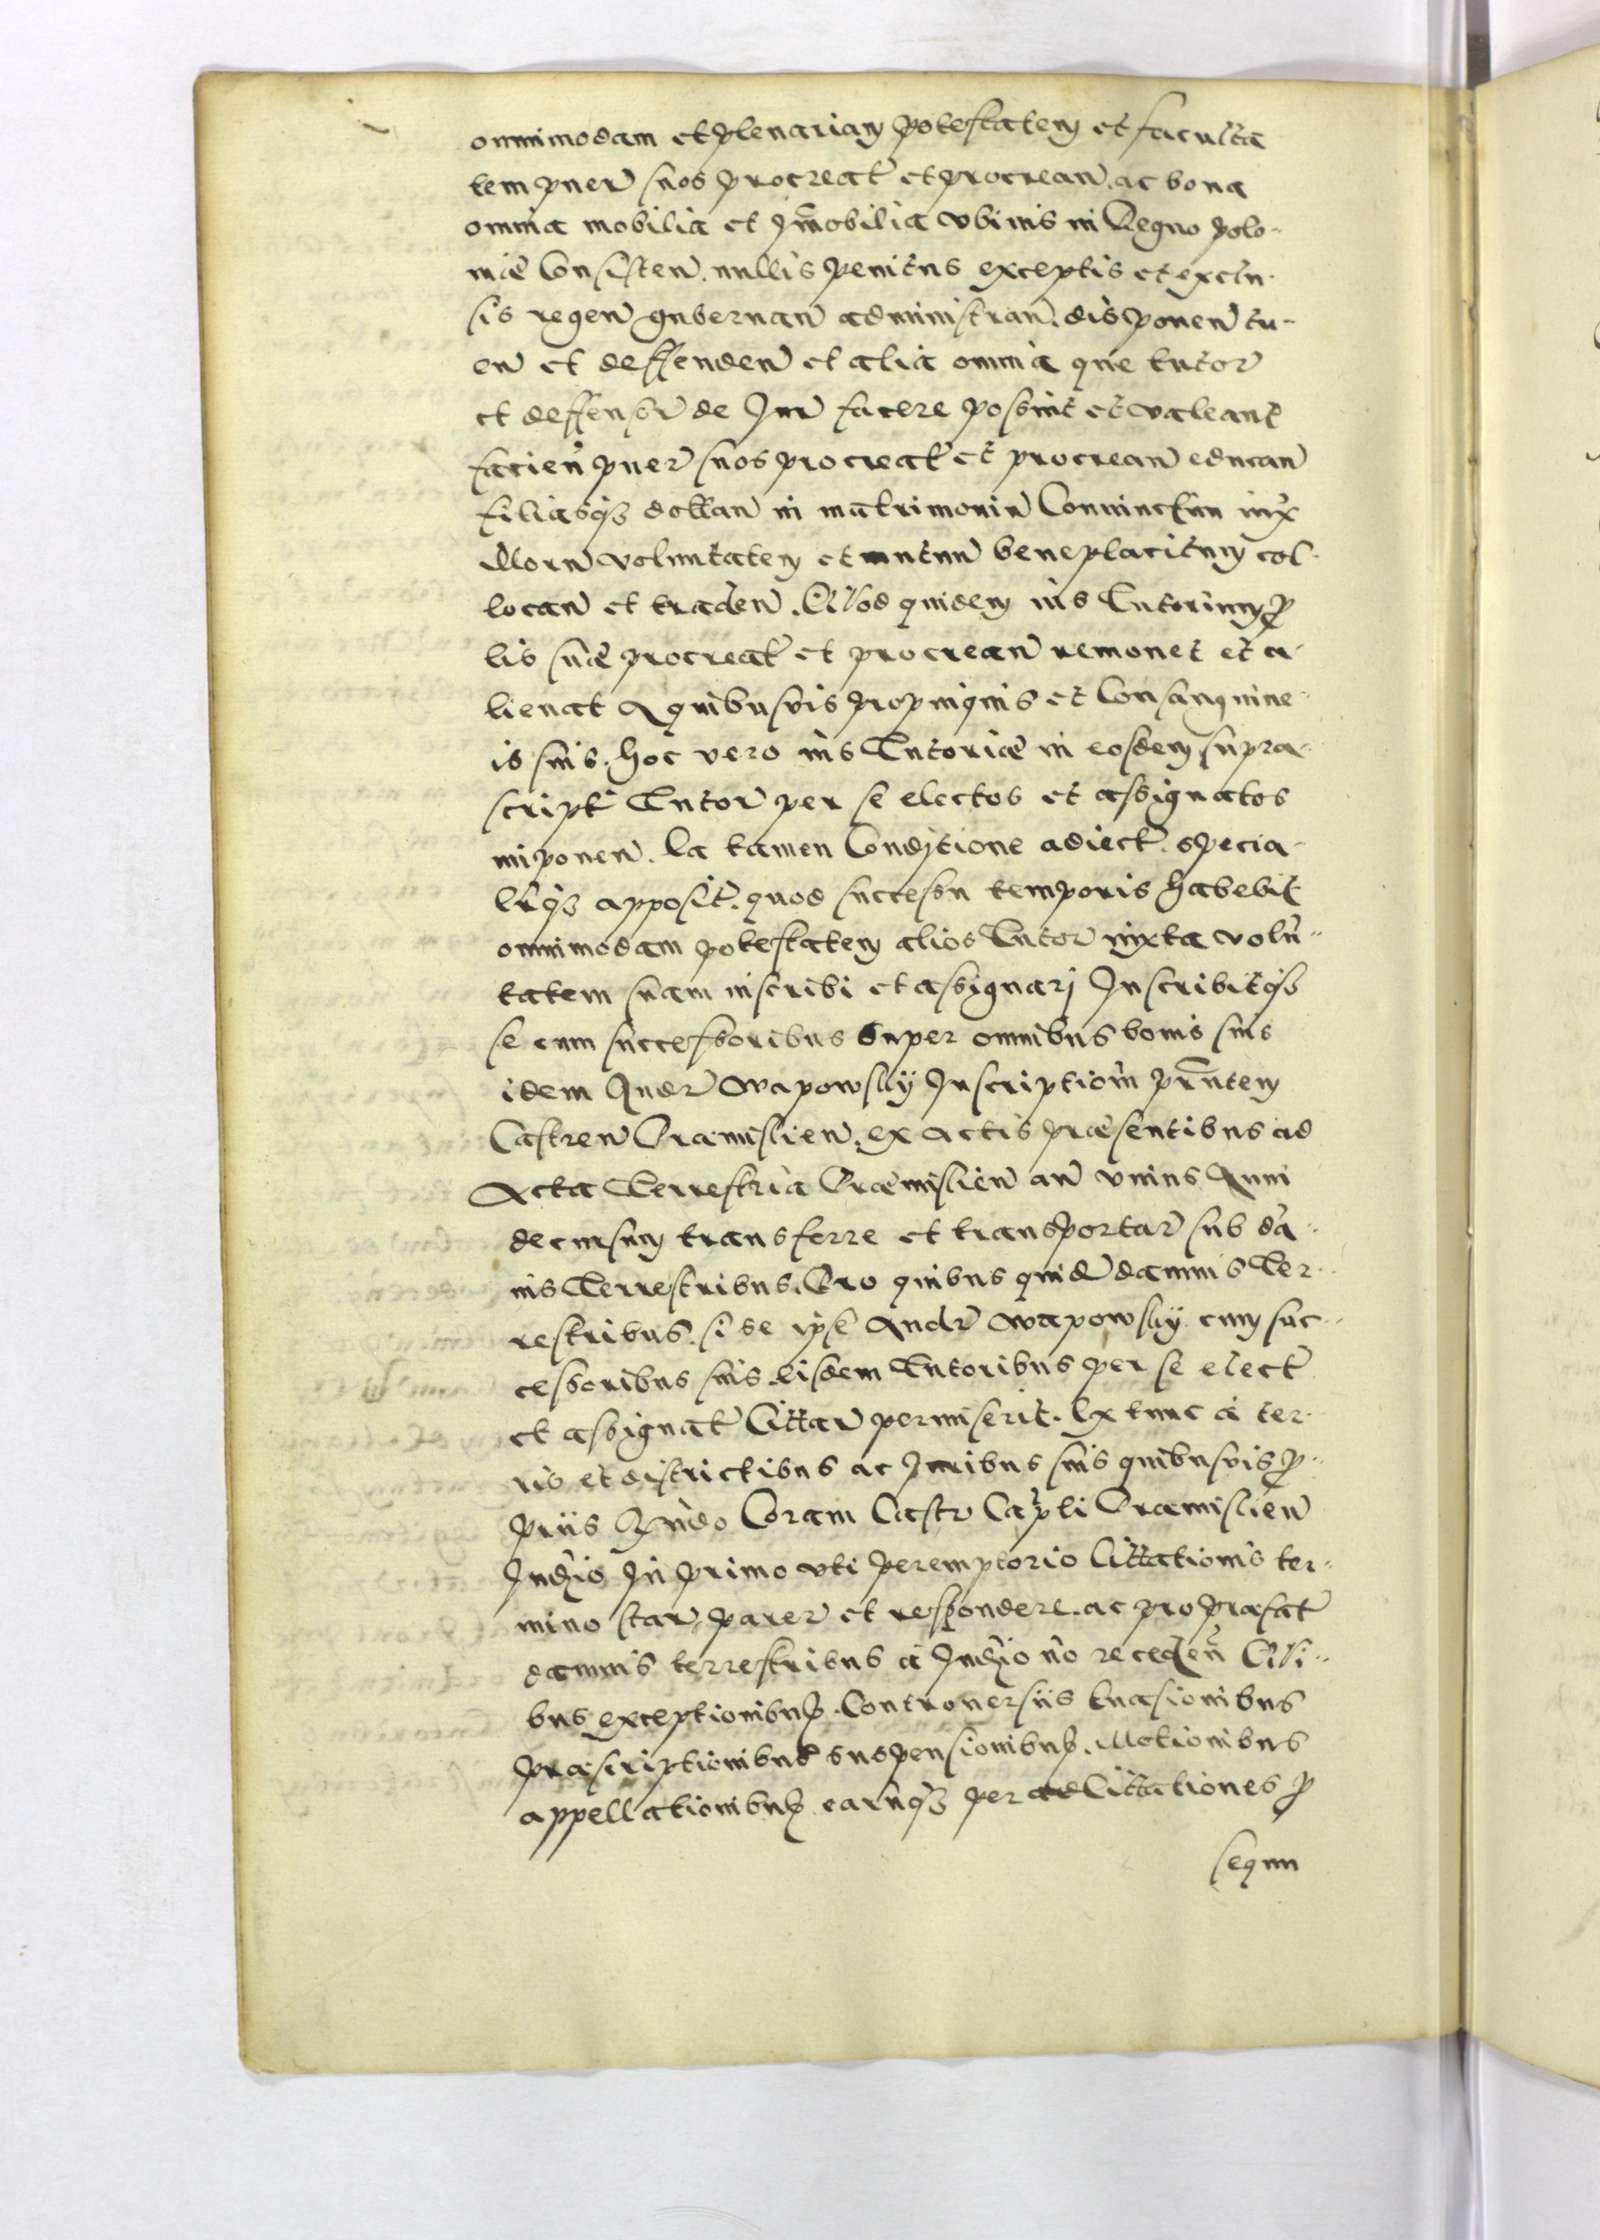 omnimodam et plenariam potestatem et faculta
tem puer suos procreat et procrean ac bona
omnia mobilia et Immobilia vbiuis in Regno polo-
niæ Consisten. nullis penitus exceptis et exclu-
sis regen gubernan administran. disponen tu-
en et deffenden et alia omnia que tutor
et deffensor de Jur facere possint et valeant
facien puer suos procreat et procrean educan
filiasq₃ dottan in matrimoniu Coniunctim iux
illoru voluntatem et mutuu beneplacitum col-
locan et traden. Quod quidem ius Tutorium p
lis suæ procreat et procrean remouet et a-
lienat a quibusuis propinquis et Consanguine-
is suis. hoc vero ius Tutoriæ in eosdem supra-
script Tutor per se electos et assignatos
imponen. Ea tamen Conditione adiect. specia-
lrq₃ apposit. quod successu temporis habebit
omnimodam potestatem alios Tutor iuxta volu-
tatem suam inscribi et assignarj Inscribitq₃
se cum successoribus super omnibus bonis suis
idem Andr Wapowsky Inscriptiom pntem
Castren Præmislien. ex actis præsentibus ad
Acta Terrestria Præmislien an vnius Anni
decursum transferre et transportar sub da-
nis Terrestribus. Pro quibus quid damnis Ter-
restribus. si se ipse Andr Wapowsky cum suc-
cessoribus suis eisdem Tutoribus per se elect
et assignat Cittar permiserit. Ex tunc a ter-
ris et districtibus ac Juribus suis quibusuis p-
priis Coram Castr Capli Præmislien
Judio In primo vti peremptorio Cittationis ter-
mino star, parer et respondere. ac pro præfat
damnis terrestribus a Judio no receden Qui-
bus exceptionibus. Controuersiis Euasionibus
præscriptionibus suspensionibus. Motionibus
appellationibus earuq₃ per Cittationes p
sequn